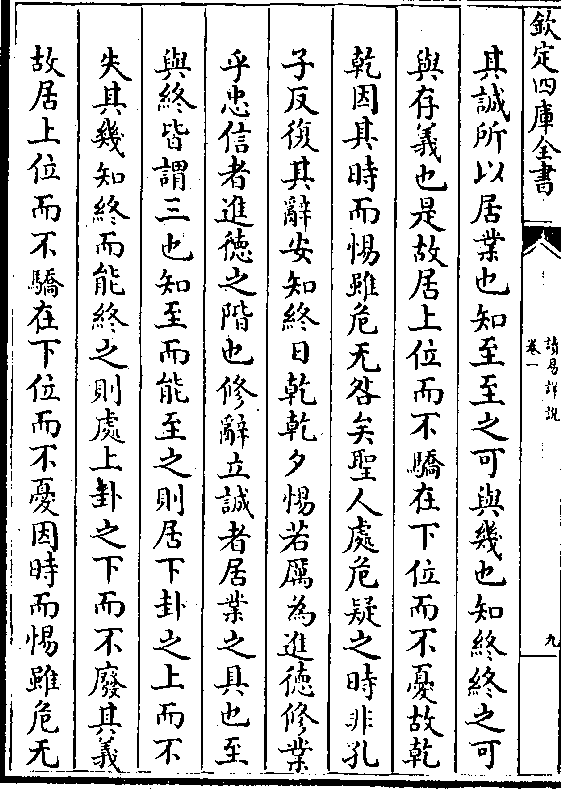 欽定四庫全書
讀易詳說
卷一
九
其誠所以居業也知至至之可與幾也知終終之可
與存義也是故居上位而不驕在下位而不憂故乾
乾因其時而惕雖危无咎矣聖人處危疑之時非孔
子反復其辭安知終日乾乾夕惕若厲為進徳修業
乎忠信者進徳之階也修辭立誠者居業之具也至
與終皆謂三也知至而能至之則居下卦之上而不
失其幾知終而能終之則處上卦之下而不廢其義
故居上位而不驕在下位而不憂因時而惕雖危无